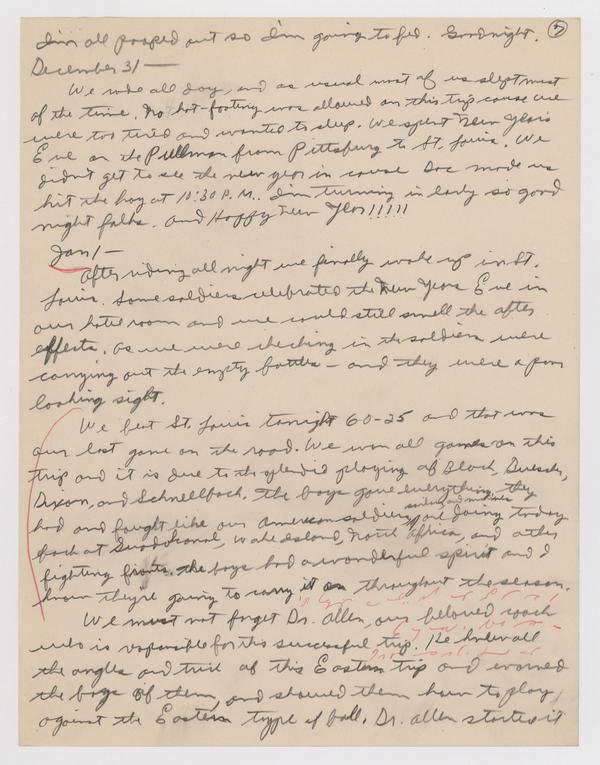 I'm all pooped out so I'm going to bed. Goodnight. 7
December 31—
We rode all day, and as usual most of us slept most
of the time. No hot-footing was allowed on this trip cause we
were too tired and wanted to sleep. We spent New Years
Eve on the Pullman from Pittsburg to St. Louis. We
didn't get to see the new year in cause Doc made us
hit the hay at 10:30 P.M.. I'm turning in early so good
night folks. And Happy New Year!!!!!
Jan 1—
After riding all night we finally woke up in St.
Louis. Some soldiers celebrated the New Years Eve in
our hotel room and we could still smell the after
effects. As we were checking in the soldiers were
carrying out the empty bottles – and they were a poor
looking sight.
We beat St. Louis tonight 60-25 and that was
our last game on the road. We won all games on this
trip and it is due to the splendid playing of Black, Buescher,
Dixon, and Schnellbach. The boys gave everything they
had and fought like our American soldiers, sailors and marines are doing today
at Guadalcanal, Wake Island, North Africa, and other
fighting fronts. The boys had a wonderful spirit and I
know they're going to carry it on throughout the season.
We must not forget Dr. Allen, our beloved coach
who is responsible for this successful trip. He knew all
the angles and trick of this Eastern trip and warned
the boys of them, and showed them how to play,
against the Eastern type of ball. Dr. Allen started it